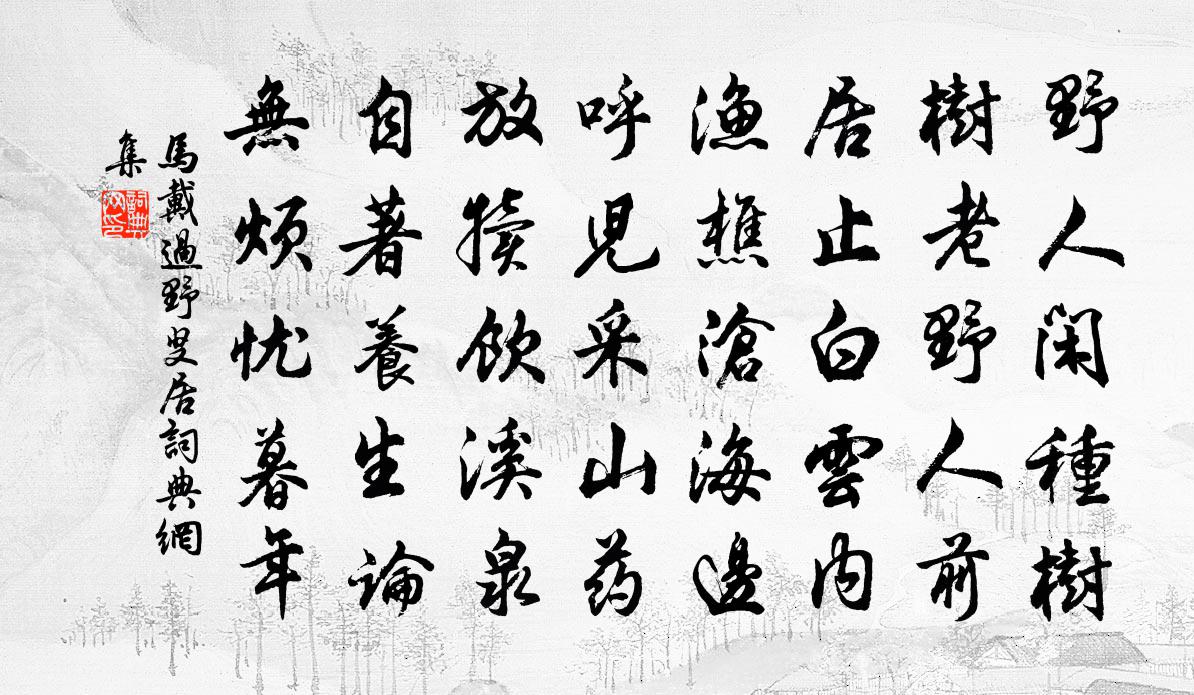 野人閑種樹
樹老野人前
居止白雲內
漁樵滄海邊
呼児采山药
放犢飲溪泉
自著養生論
無煩忧暮年
馬戴過野叟居詞典網
集
詞典
网印